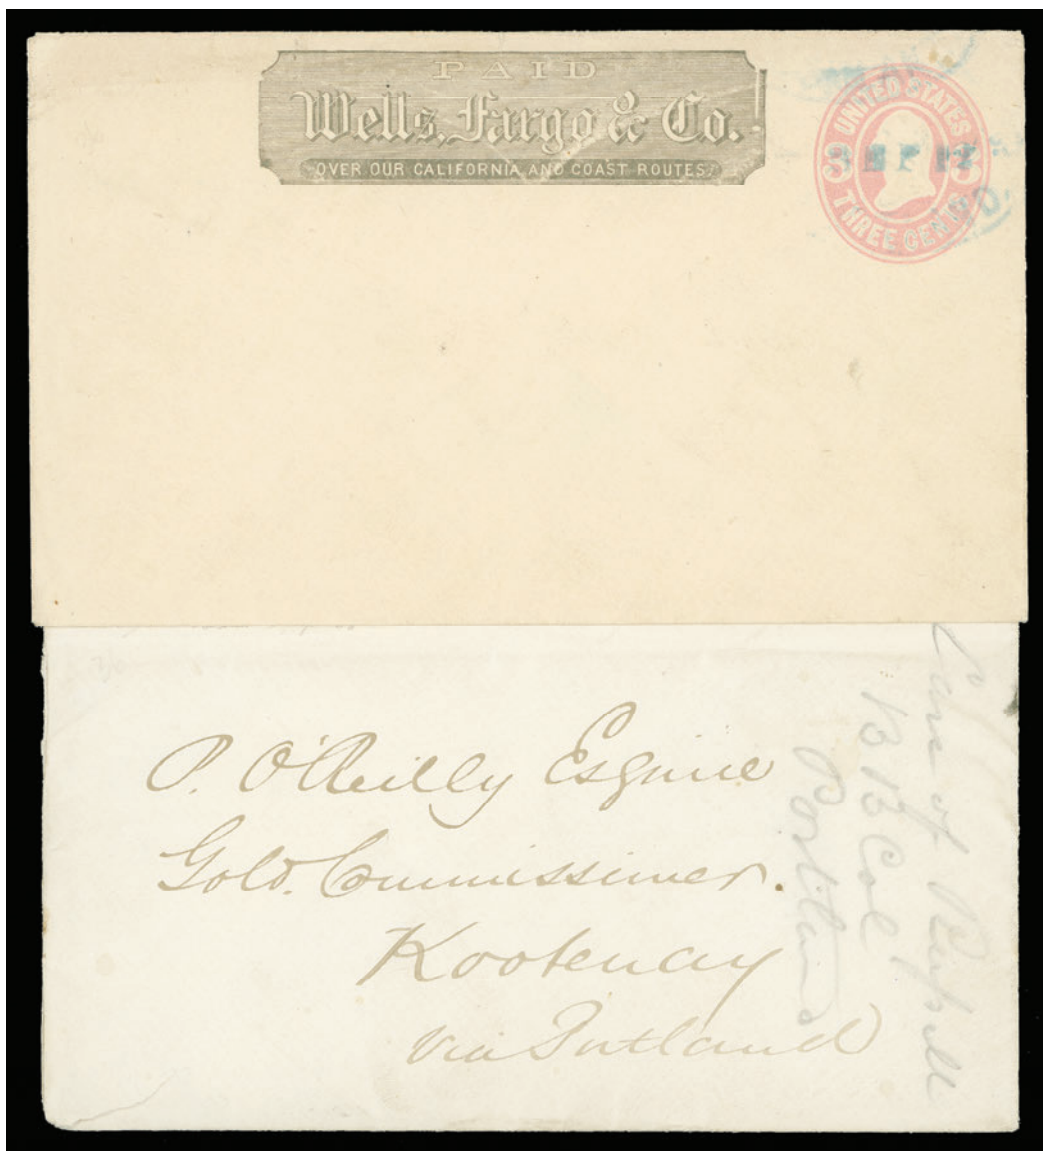 PAID
Wells, Fargo & Co.
OVER OUR CALIFORNIA AND COAST ROUTES.
UNITED STATES
3 3
THREE CENTS
SEP 12
P. O'Reilly Esquire
Gold. Commissioner.
Kootenay
via Portland
Care of
B B Col
Portland